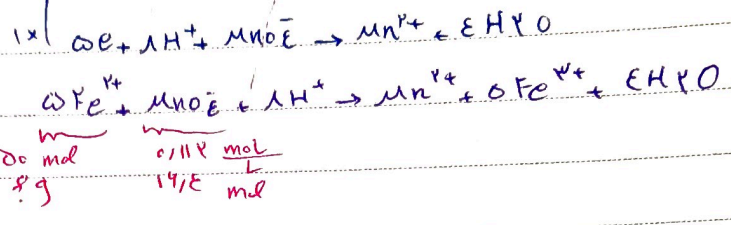 ۱×| ۵e + ۸H⁺ + MnO۴⁻ → Mn²⁺ + ۴H۲O
۵Fe²⁺ + MnO۴⁻ + ۸H⁺ → Mn²⁺ + ۵Fe³⁺ + ۴H۲O
۵۰ ml ۰/۱۱۲ mol/L
? g ۱۶/۴ ml